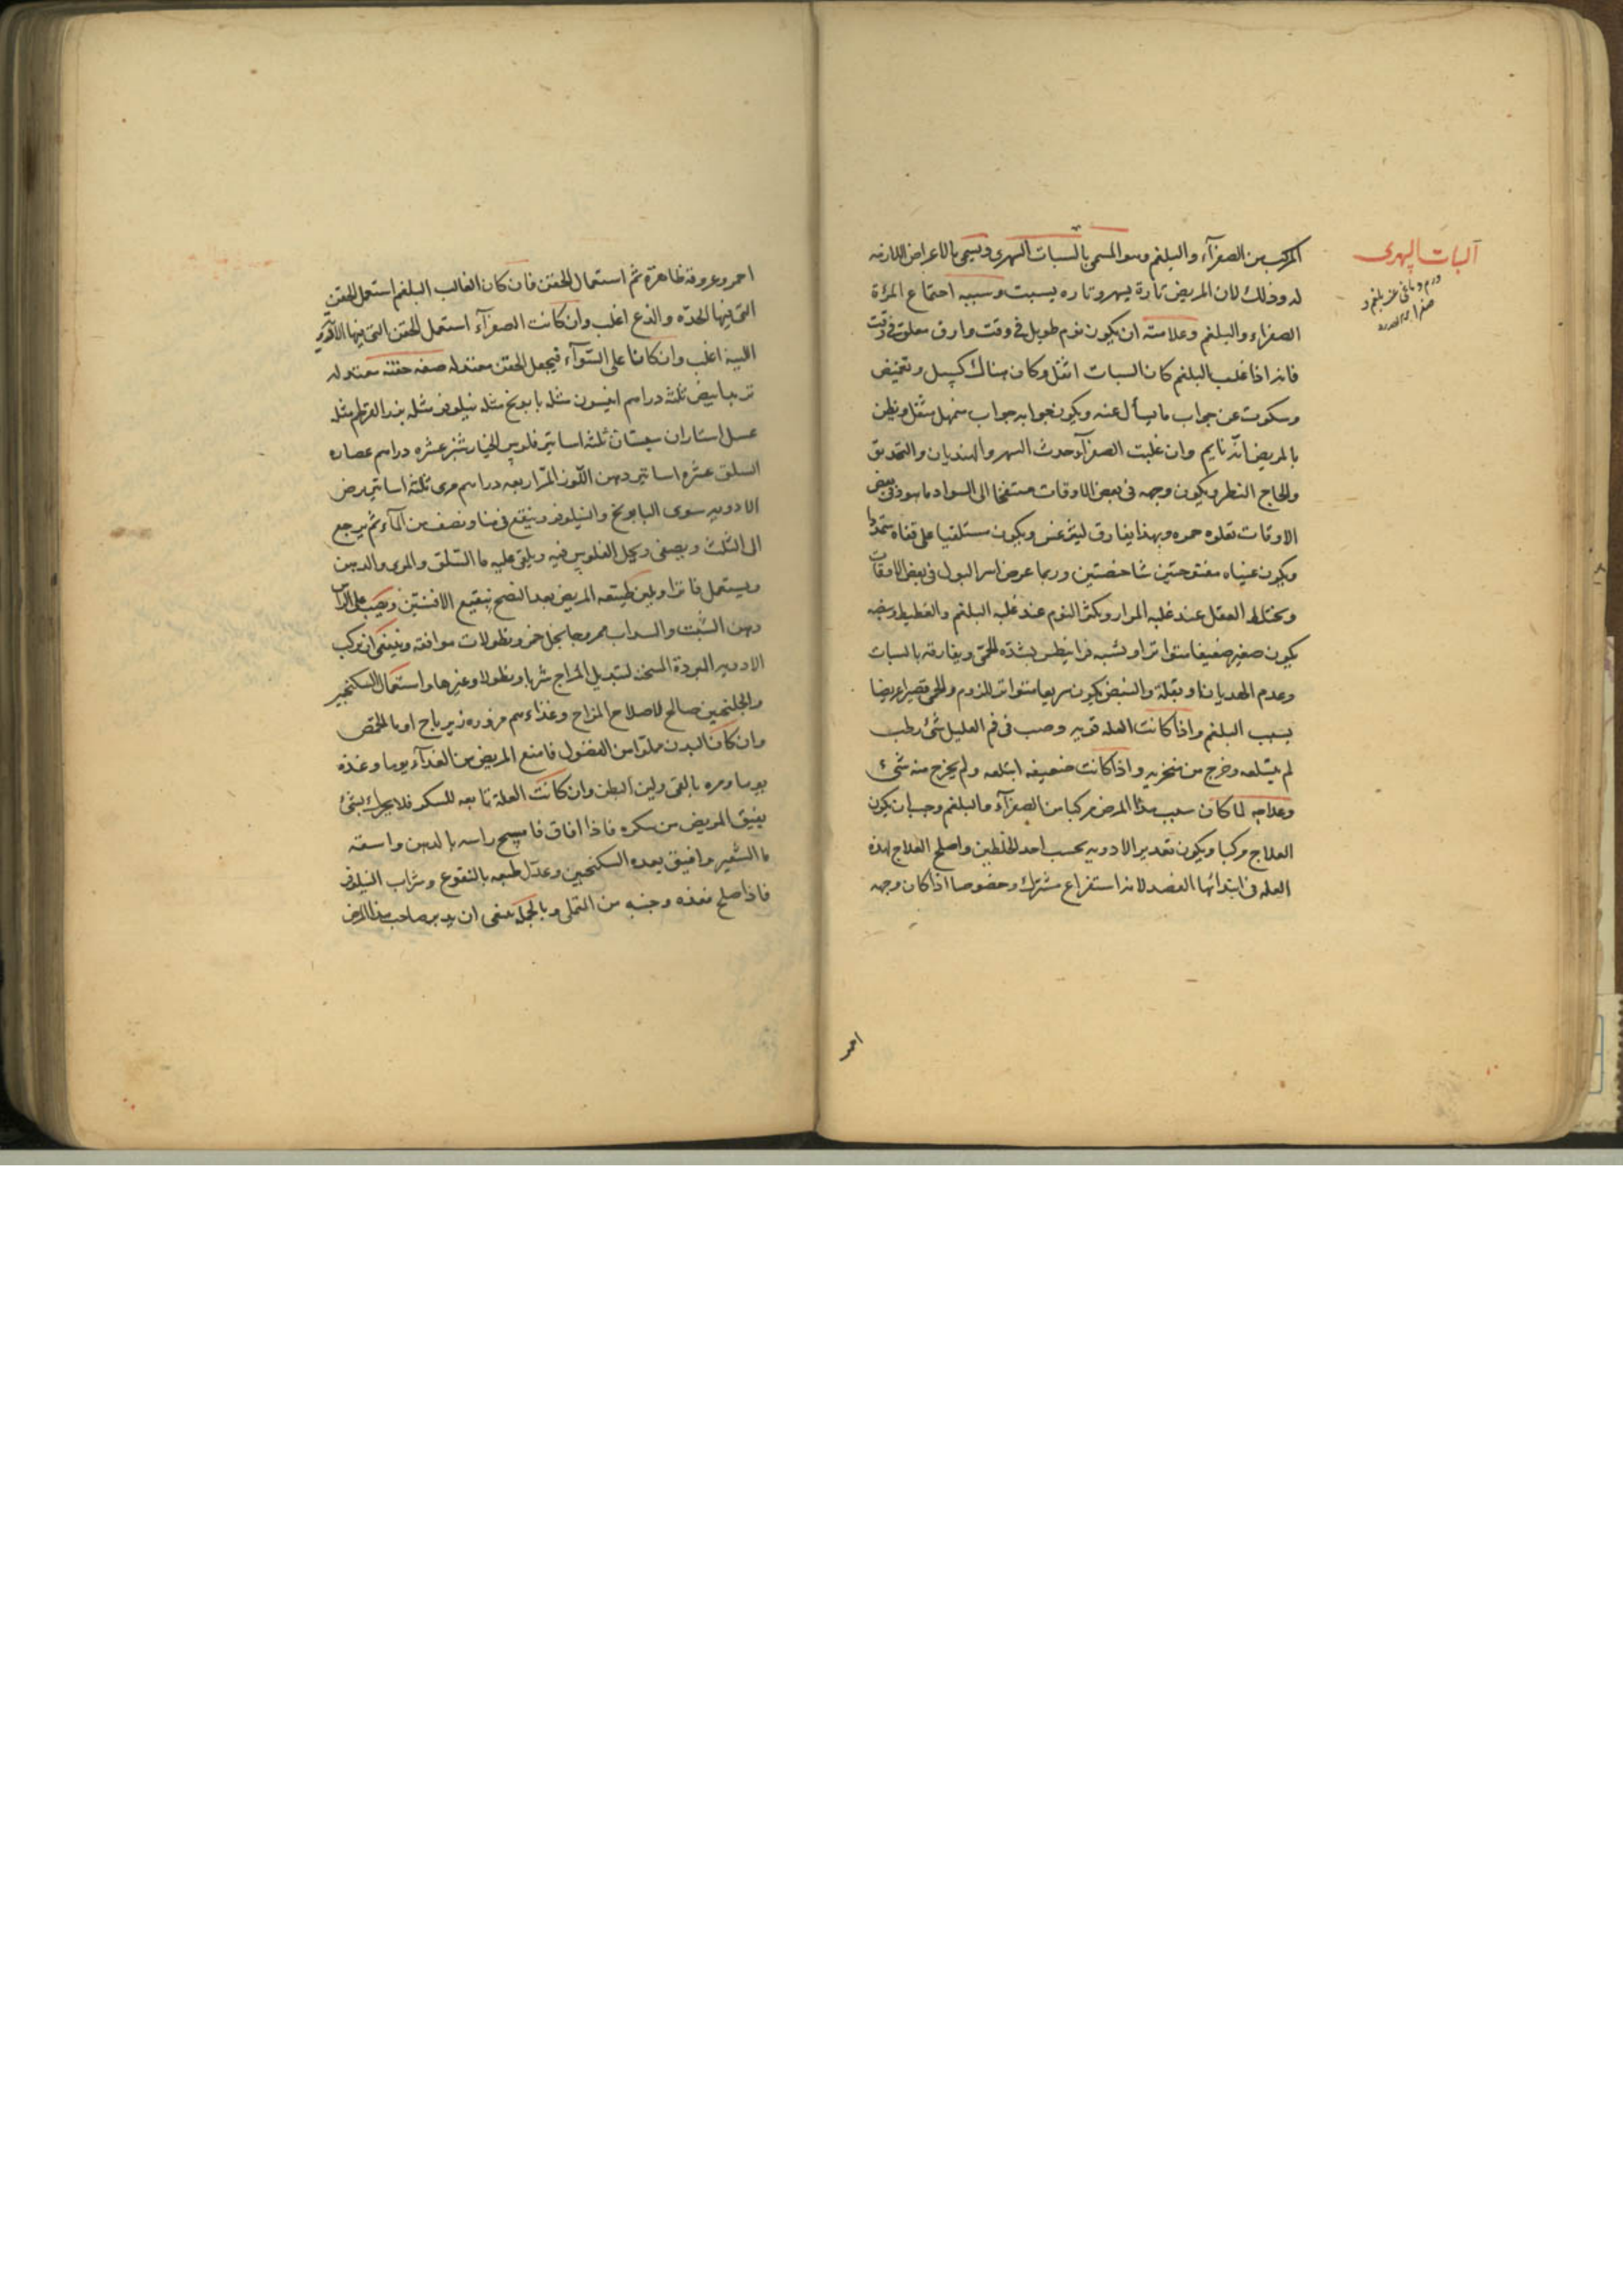 السبات السهرى
المركب من الصفرآء والبلغم وهو المسمى بالسبات السهرى ويسمى بالاعراض اللازمة
له وذلك لان المريض تارة يسهر وتاره يسبت وسببه اجتماع المرة
الصفراء والبلغم وعلامته ان يكون نوم طويل فى وقت وارق مقلق فى وقت
فانه اذا غلب البلغم كان السبات اثقل وكان هناك كسل وتغميض
وسكوت عن جواب ما يسأل عنه ويكون جوابه جواب متمهل مثقل ويظن
بالمريض انه نايم وان غلبت الصفرآء حدث السهر والهذيان والتحديق
والحاح النظر ويكون وجهه فى بعض الاوقات منتفخا الى السواد ما هو وفى بعض
الاوقات تعلوه حمره وبهذا يفارق ليثرغس ويكون مستلقيا على قفاه
ويكون عيناه مفتوحتين شاخصتين وربما عرض اسر البول فى بعض الاوقات
ويختلط العقل عند غلبه المرار ويكثر النوم عند غلبه البلغم والغطيط ونبضه
يكون صغير ضعيفا متواترا ويشبه فرانيطس بشدّه الحمى ويفارقه بالسبات
وعدم الهذيان او بقلة والنبض يكون سريعا متواتر للزوم والحمى قصيرا عريضا
بسبب البلغم واذا كانت العله قويه وصب فى فم العليل شئ رطب
لم يبتلعه وخرج من منخريه واذا كانت ضعيفه ابتلعه ولم يخرج منه شئ
وعلاجه لما كان سبب هذا المرض مركبا من الصفرآء والبلغم وجب ان يكون
العلاج مركبا ويكون تقدير الادويه بحسب احد الخلطين واصلح العلاج لهذه
العله فى ابتدائها الفصد لانه استفراغ مشترك وخصوصا اذا كان وجهه
احمر
احمر وعروقه ظاهرة ثم استعمال الحقن فان كان الغالب البلغم استعمل الحقن
التى فيها الحدّه والذع اغلب وان كانت الصفرآء استعمل الحقن التى فيها الادوية
اللينة اغلب وان كانا على السّوآء فيجعل الحقن معتدله صفه حقنه معتدله
تربد ابيض ثلثة دراهم انيسون مثله بابونج مثله نيلوفر مثله بزر القرطم مثله
عسل استاران سبستان ثلثة اساتير فلوس الخيار شنبر عشره دراهم عصاره
السلق عشره اساتير دهن اللّوز المرّ اربعه دراهم مرى ثلثة اساتير يرض
الادويه سوى البابونج والنيلوفر وينقع فى منا ونصف من المآء ثم يرجع
الى الثلث ويصفى ويحل الفلوس فيه ويلقى عليه ما السّلق والمرى والدهن
ويستعمل فاترا ويلين طبيعه المريض بعد النضج بنقيع الافسنتين ويصب على الراس
دهن الشبت والسداب ممزوجا بخل خمر ونطولات موافقه وينبغى ان يركب
الادويه المبردة المسخن لتبديل المزاج شربا ونطولا وغيرها واستعمال السكنجبين
والجلنجبين صالح لاصلاح المزاج وغذاءهم مزوره زيرباج او ما الحمص
وان كان البدن مملوّا من الفضول فامنع المريض من الغذآء يوما وغذه
يوما ومره بالقى ولين البطن وان كانت العلة تابعه للسكر فلا يحرك بشئ
يفيق المريض من سكره فاذا افاق فامسح راسه بالدهن واسقه
ما الشعير وبعده السكنجبين وعدّل طبعه بالنقوع وشراب النيلوفر
فاذا صلح فغذه وجنبه من التملى وبالجمله ينبغى ان يدبر صاحب هذا المرض